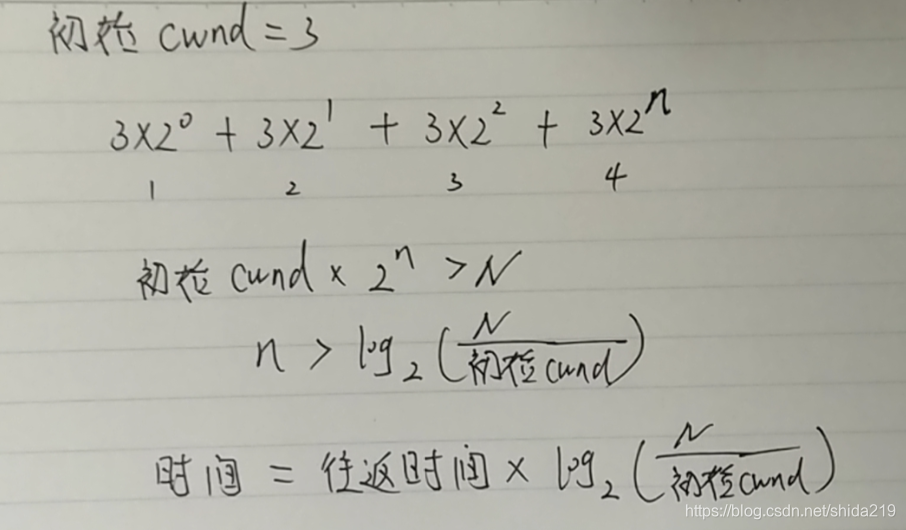 初始 cwnd = 3
3×2⁰ + 3×2¹ + 3×2² + 3×2ⁿ
1 2 3 4
初始 cwnd × 2ⁿ > N
n > log₂(N/初始cwnd)
时间 = 往返时间 × log₂(N/初始cwnd)
https://blog.csdn.net/shida219